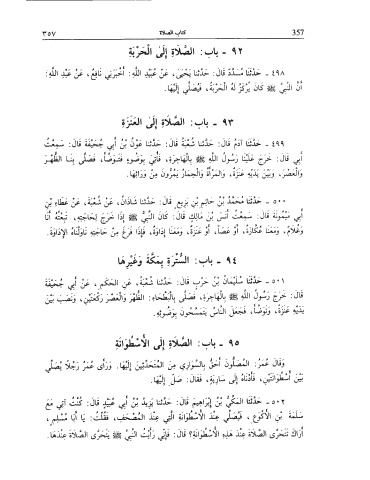 ٣٥٧ كتاب الصلاة 357
٩٢ - باب: الصَّلَاةِ إِلَى الْحَرْبَةِ
٤٩٨ - حَدَّثَنَا مُسَدَّدٌ قَالَ: حَدَّثَنَا يَحْيَى، عَنْ عُبَيْدِ اللَّهِ: أَخْبَرَنِي نَافِعٌ، عَنْ عَبْدِ اللَّهِ:
أَنَّ النَّبِيَّ ﷺ كَانَ يُرْكَزُ لَهُ الْحَرْبَةُ، فَيُصَلِّي إِلَيْهَا.
٩٣ - باب: الصَّلَاةِ إِلَى الْعَنَزَةِ
٤٩٩ - حَدَّثَنَا آدَمُ قَالَ: حَدَّثَنَا شُعْبَةُ قَالَ: حَدَّثَنَا عَوْنُ بْنُ أَبِي جُحَيْفَةَ قَالَ: سَمِعْتُ
أَبِي قَالَ: خَرَجَ عَلَيْنَا رَسُولُ اللَّهِ ﷺ بِالْهَاجِرَةِ، فَأُتِيَ بِوَضُوءٍ فَتَوَضَّأَ، فَصَلَّى بِنَا الظُّهْرَ
وَالْعَصْرَ، وَبَيْنَ يَدَيْهِ عَنَزَةٌ، وَالْمَرْأَةُ وَالْحِمَارُ يَمُرُّونَ مِنْ وَرَائِهَا.
٥٠٠ - حَدَّثَنَا مُحَمَّدُ بْنُ حَاتِمِ بْنِ بَزِيعٍ قَالَ: حَدَّثَنَا شَاذَانُ، عَنْ شُعْبَةَ، عَنْ عَطَاءِ بْنِ
أَبِي مَيْمُونَةَ قَالَ: سَمِعْتُ أَنَسَ بْنَ مَالِكٍ قَالَ: كَانَ النَّبِيُّ ﷺ إِذَا خَرَجَ لِحَاجَتِهِ، تَبِعْتُهُ أَنَا
وَغُلَامٌ، وَمَعَنَا عُكَّازَةٌ، أَوْ عَصًا، أَوْ عَنَزَةٌ، وَمَعَنَا إِدَاوَةٌ، فَإِذَا فَرَغَ مِنْ حَاجَتِهِ نَاوَلْنَاهُ الْإِدَاوَةَ.
٩٤ - باب: السُّتْرَةِ بِمَكَّةَ وَغَيْرِهَا
٥٠١ - حَدَّثَنَا سُلَيْمَانُ بْنُ حَرْبٍ قَالَ: حَدَّثَنَا شُعْبَةُ، عَنِ الْحَكَمِ، عَنْ أَبِي جُحَيْفَةَ
قَالَ: خَرَجَ رَسُولُ اللَّهِ ﷺ بِالْهَاجِرَةِ، فَصَلَّى بِالْبَطْحَاءِ: الظُّهْرَ وَالْعَصْرَ رَكْعَتَيْنِ، وَنَصَبَ بَيْنَ
يَدَيْهِ عَنَزَةً، وَتَوَضَّأَ، فَجَعَلَ النَّاسُ يَتَمَسَّحُونَ بِوَضُوئِهِ.
٩٥ - باب: الصَّلَاةِ إِلَى الْأُسْطُوَانَةِ
وَقَالَ عُمَرُ: الْمُصَلُّونَ أَحَقُّ بِالسَّوَارِي مِنَ الْمُتَحَدِّثِينَ إِلَيْهَا. وَرَأَى عُمَرُ رَجُلًا يُصَلِّي
بَيْنَ أُسْطُوَانَتَيْنِ، فَأَدْنَاهُ إِلَى سَارِيَةٍ، فَقَالَ: صَلِّ إِلَيْهَا.
٥٠٢ - حَدَّثَنَا الْمَكِّيُّ بْنُ إِبْرَاهِيمَ قَالَ: حَدَّثَنَا يَزِيدُ بْنُ أَبِي عُبَيْدٍ قَالَ: كُنْتُ آتِي مَعَ
سَلَمَةَ بْنِ الْأَكْوَعِ، فَيُصَلِّي عِنْدَ الْأُسْطُوَانَةِ الَّتِي عِنْدَ الْمُصْحَفِ، فَقُلْتُ: يَا أَبَا مُسْلِمٍ،
أَرَاكَ تَتَحَرَّى الصَّلَاةَ عِنْدَ هَذِهِ الْأُسْطُوَانَةِ؟ قَالَ: فَإِنِّي رَأَيْتُ النَّبِيَّ ﷺ يَتَحَرَّى الصَّلَاةَ عِنْدَهَا.